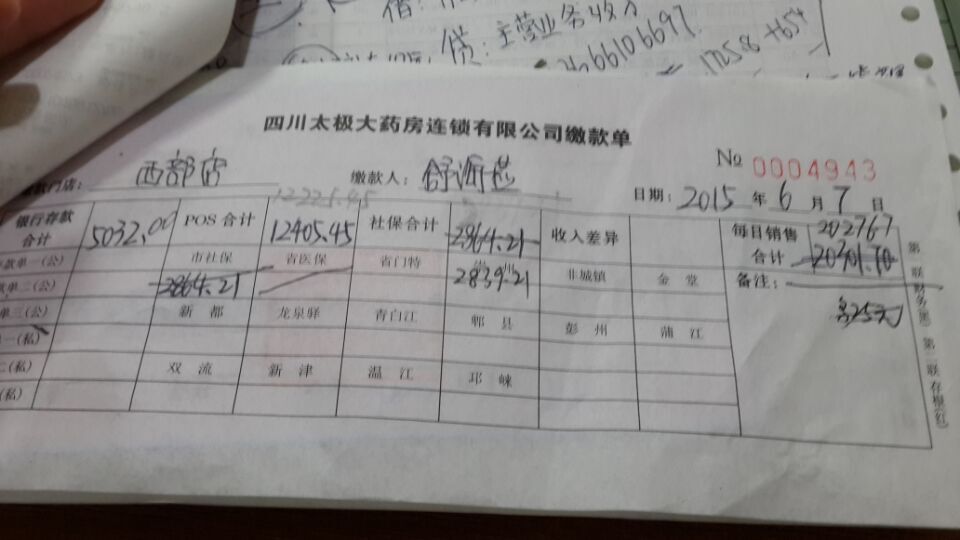 贷：主营业务收入
四川太极大药房连锁有限公司缴款单
No 0004943
款门店： 西部店 缴款人： 日期：2015 年 6 月 7 日
12225.45
银行存款合计 5032.00 POS合计 12405.45 社保合计 2964.21 收入差异 每日销售合计 202767 20401.70
款单一(公) 市社保 省医保 省门特 2839.21 非城镇 金堂 备注：
单二(公) 2864.21
单三(公) 新都 龙泉驿 青白江 郫县 彭州 蒲江 多25元
一(私)
二(私) 双流 新津 温江 邛崃
(私)
第一联财务(黑) 第二联存根(红)